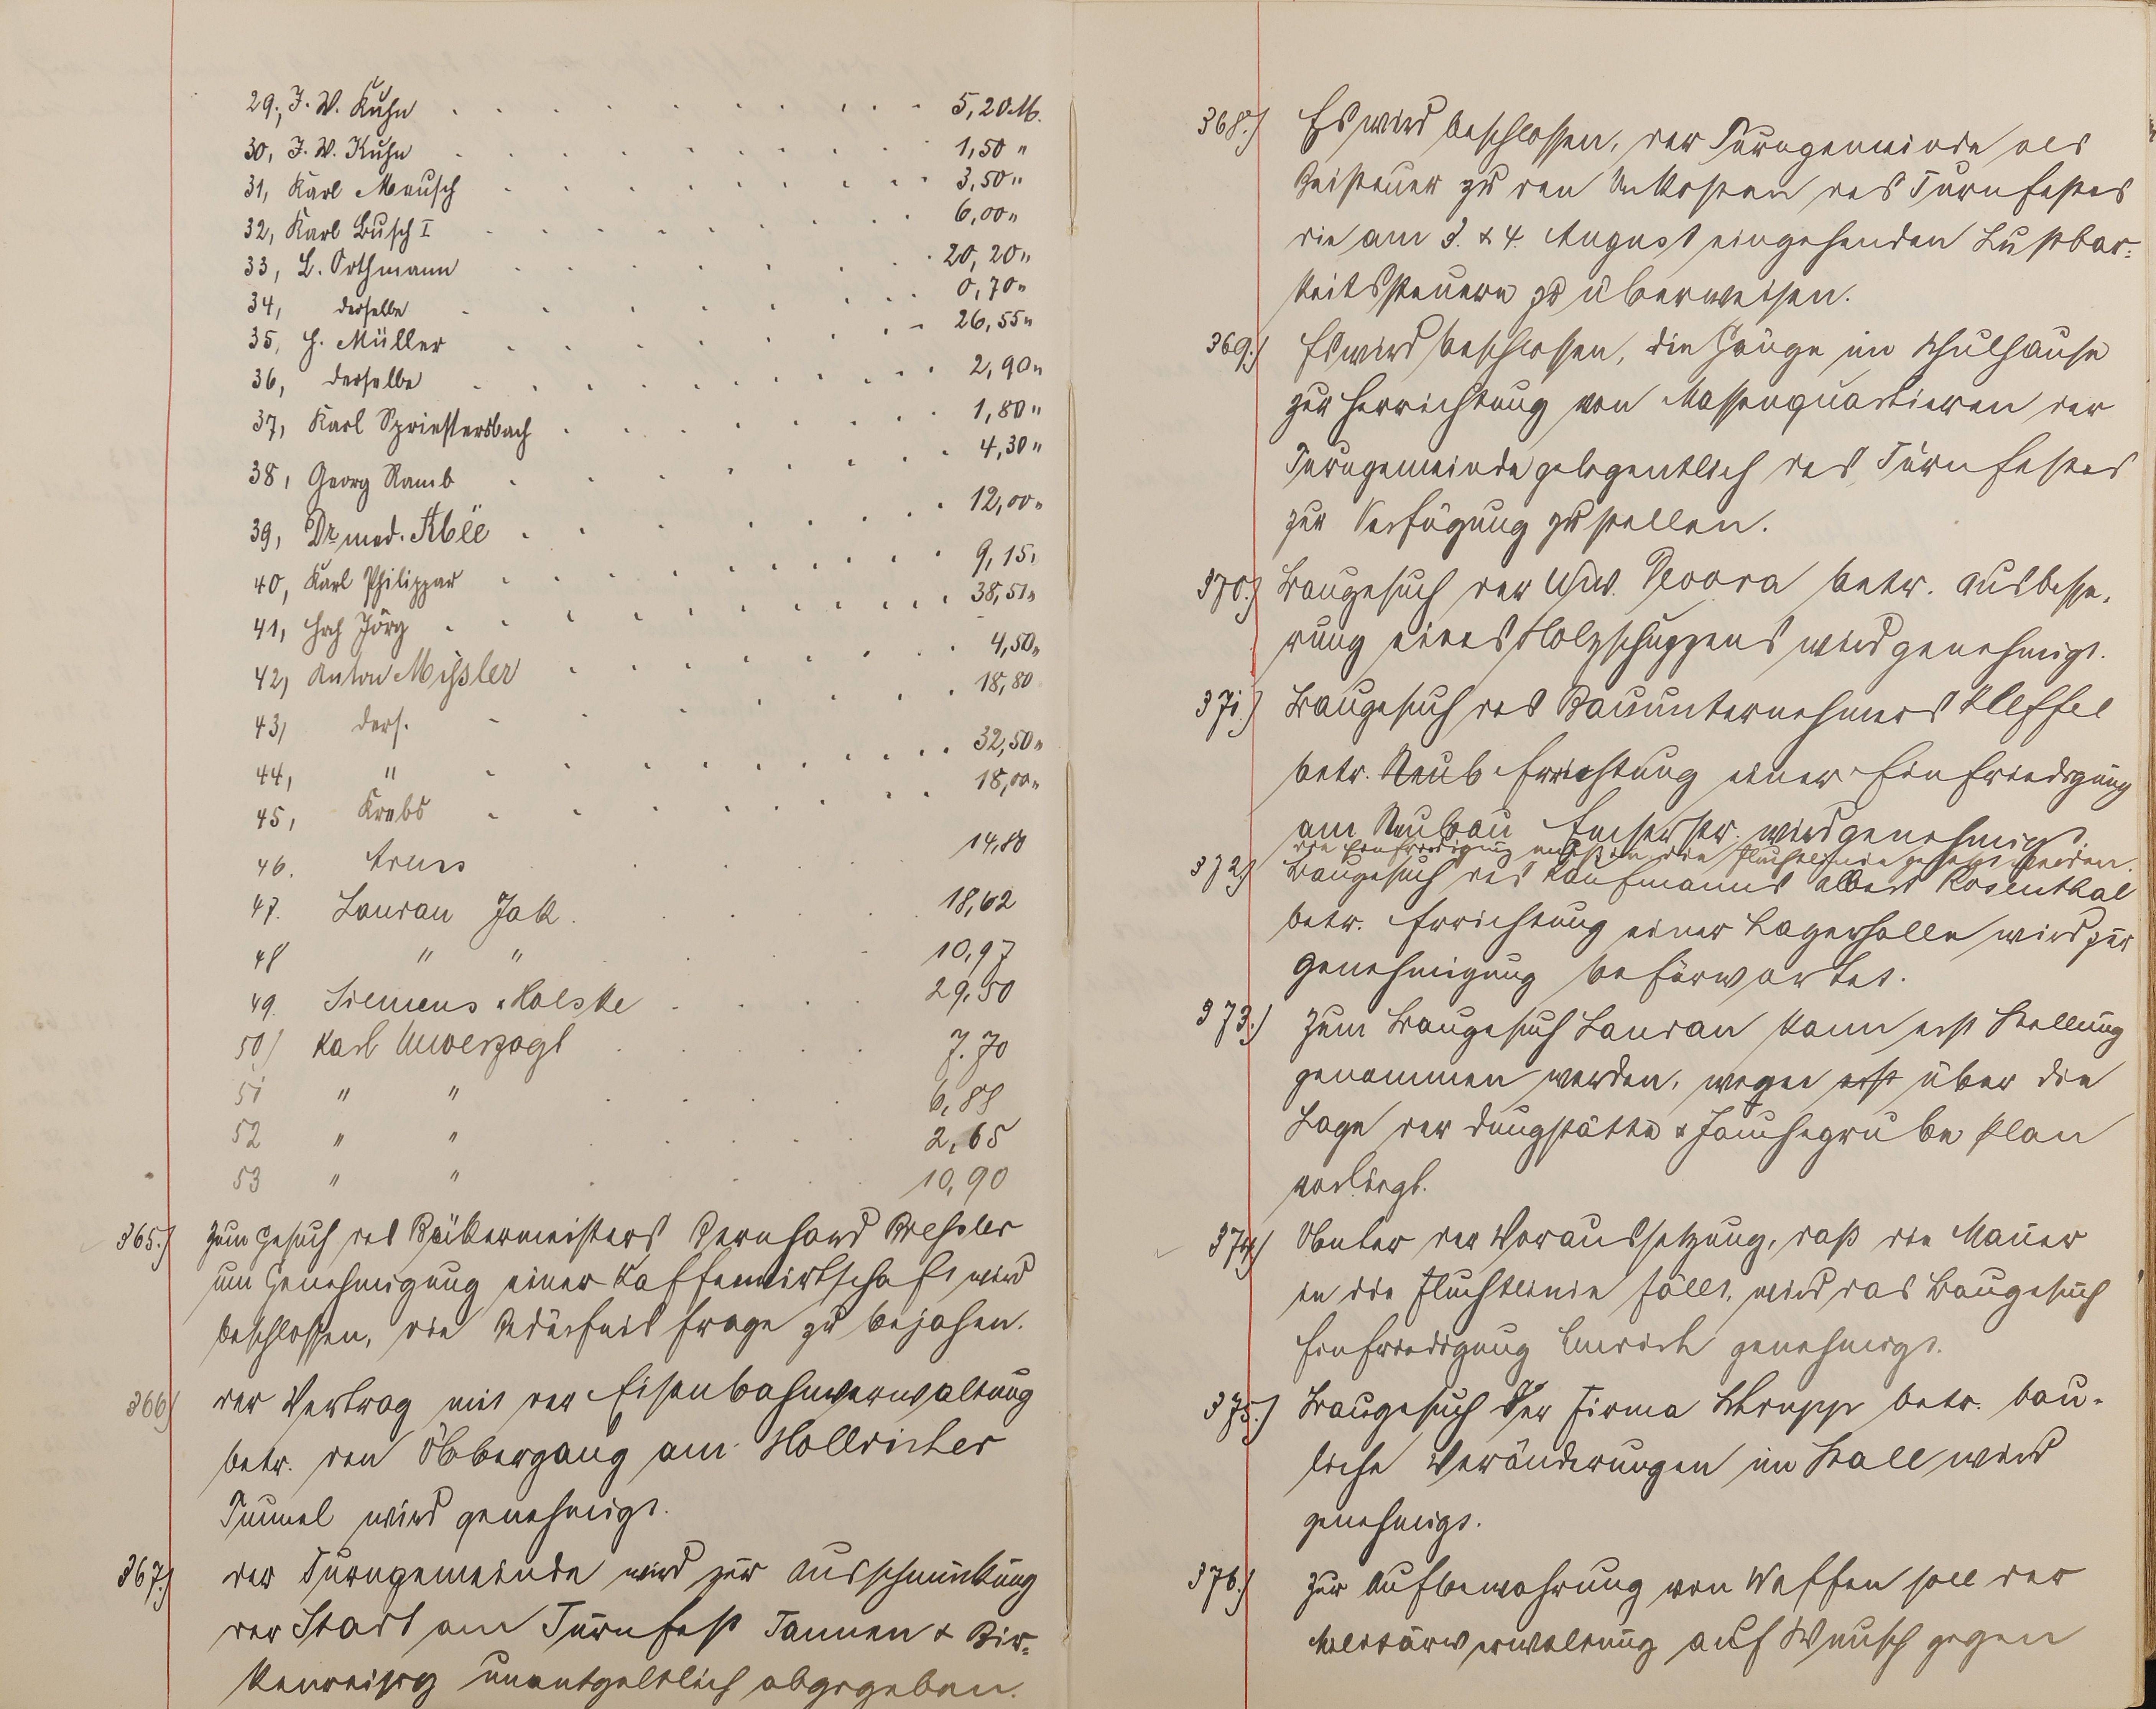 29, J. W. Kuhn . . . . . . . . . 5,20 M.
30, J. W. Kuhn . . . . . . . . . 1,50 "
31, Karl Mensch . . . . . . . . 3,50 "
32, Karl Busch I . . . . . . . . 6,00 "
33, L. Orthmann . . . . . . . 20,20 "
34, derselbe . . . . . . . . 0,70 "
35, H. Müller . . . . . . . . 26,55 "
36, derselbe . . . . . . . . . 2,90 "
37, Karl Spriestersbach . . . . . . . 1,80 "
38, Georg Ramb . . . . . . . 4,30 "
39, Dr. med. Abèe . . . . . . . . 12,00 "
40, Karl Philippar . . . . . . . . 9,15 "
41, Hch Jörg . . . . . . . . . 38,51 "
42, Anton Missler . . . . . . . 4,50 "
43, ders. - . . . . . 18,80
44, " . . . . . . . . . 32,50 "
45, Krebs . . . . . . . . 18,00 "
46. . . . . . 14,80
47. Landau Jak. . . . . . 18,62
48 " " . . . . 10,97
49. Siemens & Halske . . . . 29,50
50) Karl Unverzagt . . . . 7.70
51 " " . . . . 6,88
52 " " . . . . 2,65
53 " " . . . . 10,90
365.) Zum Gesuch des Bäckermeisters Bernhard
um Genehmigung einer Kaffeewirtschaft wird
beschlossen, die Bedürfnisfrage zu bejahen.
366) Der Vertrag mit der Eisenbahnverwaltung
betr. den Übergang am Hollricher
Tunnel wird genehmigt.
367.) Der Turngemeinde wird zur Ausschmückung
der Stadt am Turnfest Tannen & Bir=
kenreisig unentgeltlich abgegeben.
368.) Es wird beschlossen, der Turngemeinde als
Beisteuer zu den Unkosten des Turnfestes
die am 3. & 4. August eingehenden Lustbar=
keitssteuern zu überweisen.
369.) Es wird beschlossen, die Gänge im Schulhause
zur Herrichtung von Massenquartieren der
Turngemeinde gelegentlich des Turnfestes
zur Verfügung zu stellen.
370.) Baugesuch der Ww. betr. Ausbesse=
rung eines Holzschuppens wird genehmigt.
371.) Baugesuch des Bauunternehmers
betr. Neub Errichtung einer Einfriedigung
am Neubau Emserstr. wird genehmigt.
die Einfriedigung muß in die Fluchtlinie gesetzt werden.
372.) Baugesuch des Kaufmanns Albert Rosenthal
betr. Errichtung einer Lagerhalle wird zur
Genehmigung befürwortet.
373.) Zum Baugesuch Landau kann erst Stellung
genommen werden, wenn erst über die
Lage der Dungstätte & Jauchegrube Plan
vorliegt.
374) Unter der Voraussetzung, daß die Mauer
in die Fluchtlinie fällt, wird das Baugesuch
Einfriedigung Emrich genehmigt.
375.) Baugesuch der Firma Schrupp betr. bau=
liche Veränderungen im Stall wird
genehmigt.
376.) Zur Aufbewahrung von Waffen soll der
Militärverwaltung auf Wunsch gegen